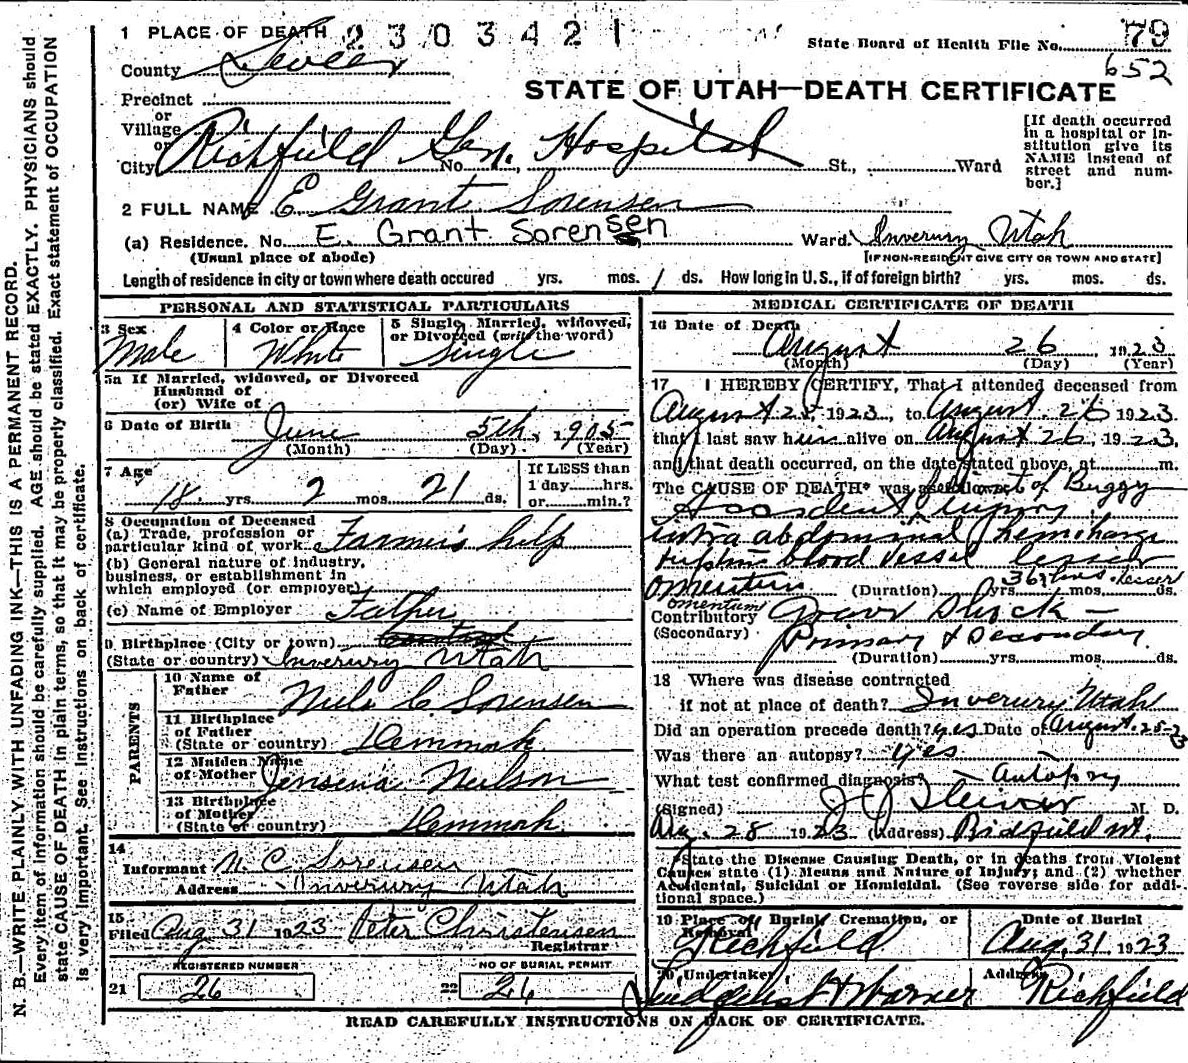 N. B.—WRITE PLAINLY WITH UNFADING INK—THIS IS A PERMANENT RECORD.
Every item of information should be carefully supplied. AGE should be stated EXACTLY. PHYSICIANS should
state CAUSE OF DEATH in plain terms, so that it may be properly classified. Exact statement of OCCUPATION
is very important. See instructions on back of certificate.
1 PLACE OF DEATH 2303421
State Board of Health File No. 79
652
County Sevier
STATE OF UTAH—DEATH CERTIFICATE
Precinct
or
Village
or
City Richfield Gen. Hospital No. St., Ward
[If death occurred
in a hospital or in-
stitution give its
NAME instead of
street and num-
ber.]
2 FULL NAME E Grant Sorensen
(a) Residence. No. E. Grant Sorensen Ward. Inverury Utah
(Usual place of abode) [IF NON-RESIDENT GIVE CITY OR TOWN AND STATE]
Length of residence in city or town where death occured yrs. mos. 1 ds. How long in U.S., if of foreign birth? yrs. mos. ds.
PERSONAL AND STATISTICAL PARTICULARS
3 Sex
Male
4 Color or Race
White
5 Single, Married, widowed,
or Divorced (write the word)
Single
5a If Married, widowed, or Divorced
Husband of
(or) Wife of
6 Date of Birth June 5th, 1905
(Month) (Day) (Year)
7 Age
18 yrs. 2 mos. 21 ds.
If LESS than
1 day hrs.
or min.?
8 Occupation of Deceased
(a) Trade, profession or
particular kind of work. Farmers help
(b) General nature of industry,
business, or establishment in
which employed (or employer)
(c) Name of Employer Father
9 Birthplace (City or town)
(State or country) Inverury Utah
PARENTS
10 Name of
Father Niels C. Sorensen
11 Birthplace
of Father
(State or country) Denmark
12 Maiden Name
of Mother Jensenia Neilson
13 Birthplace
of Mother
(State or country) Denmark
14
Informant N. C. Sorensen
Address Inverury Utah
15
Filed Aug 31 1923 Peter Christensen
Registrar
REGISTERED NUMBER
21 26
NO OF BURIAL PERMIT
22 26
MEDICAL CERTIFICATE OF DEATH
16 Date of Death
August 26 1923
(Month) (Day) (Year)
17 I HEREBY CERTIFY, That I attended deceased from
August 25, 1923, to August 26 1923
that I last saw him alive on August 26, 1923,
and that death occurred, on the date stated above, at m.
The CAUSE OF DEATH* was as follows: of Buggy
Accident injury
intra abdominal hemorhage
rupture blood vessel lesser
omentum (Duration) yrs. 36 hrs. mos. lesser ds.
omentum
Contributory Grave Shock —
(Secondary) Primary & Secondary
(Duration) yrs. mos. ds.
18 Where was disease contracted
if not at place of death? Inverury Utah
Did an operation precede death? yes Date of August 25-23
Was there an autopsy? yes
What test confirmed diagnosis? — Autopsy
(Signed) M. D.
Aug. 28 1923 (Address) Richfield Ut.
*State the Disease Causing Death, or in deaths from Violent
Causes state (1) Means and Nature of Injury; and (2) whether
Accidental, Suicidal or Homicidal. (See reverse side for addi-
tional space.)
19 Place of Burial, Cremation, or
Removal
Richfield
Date of Burial
Aug. 31 1923
20 Undertaker Warner
Address Richfield
READ CAREFULLY INSTRUCTIONS ON BACK OF CERTIFICATE.